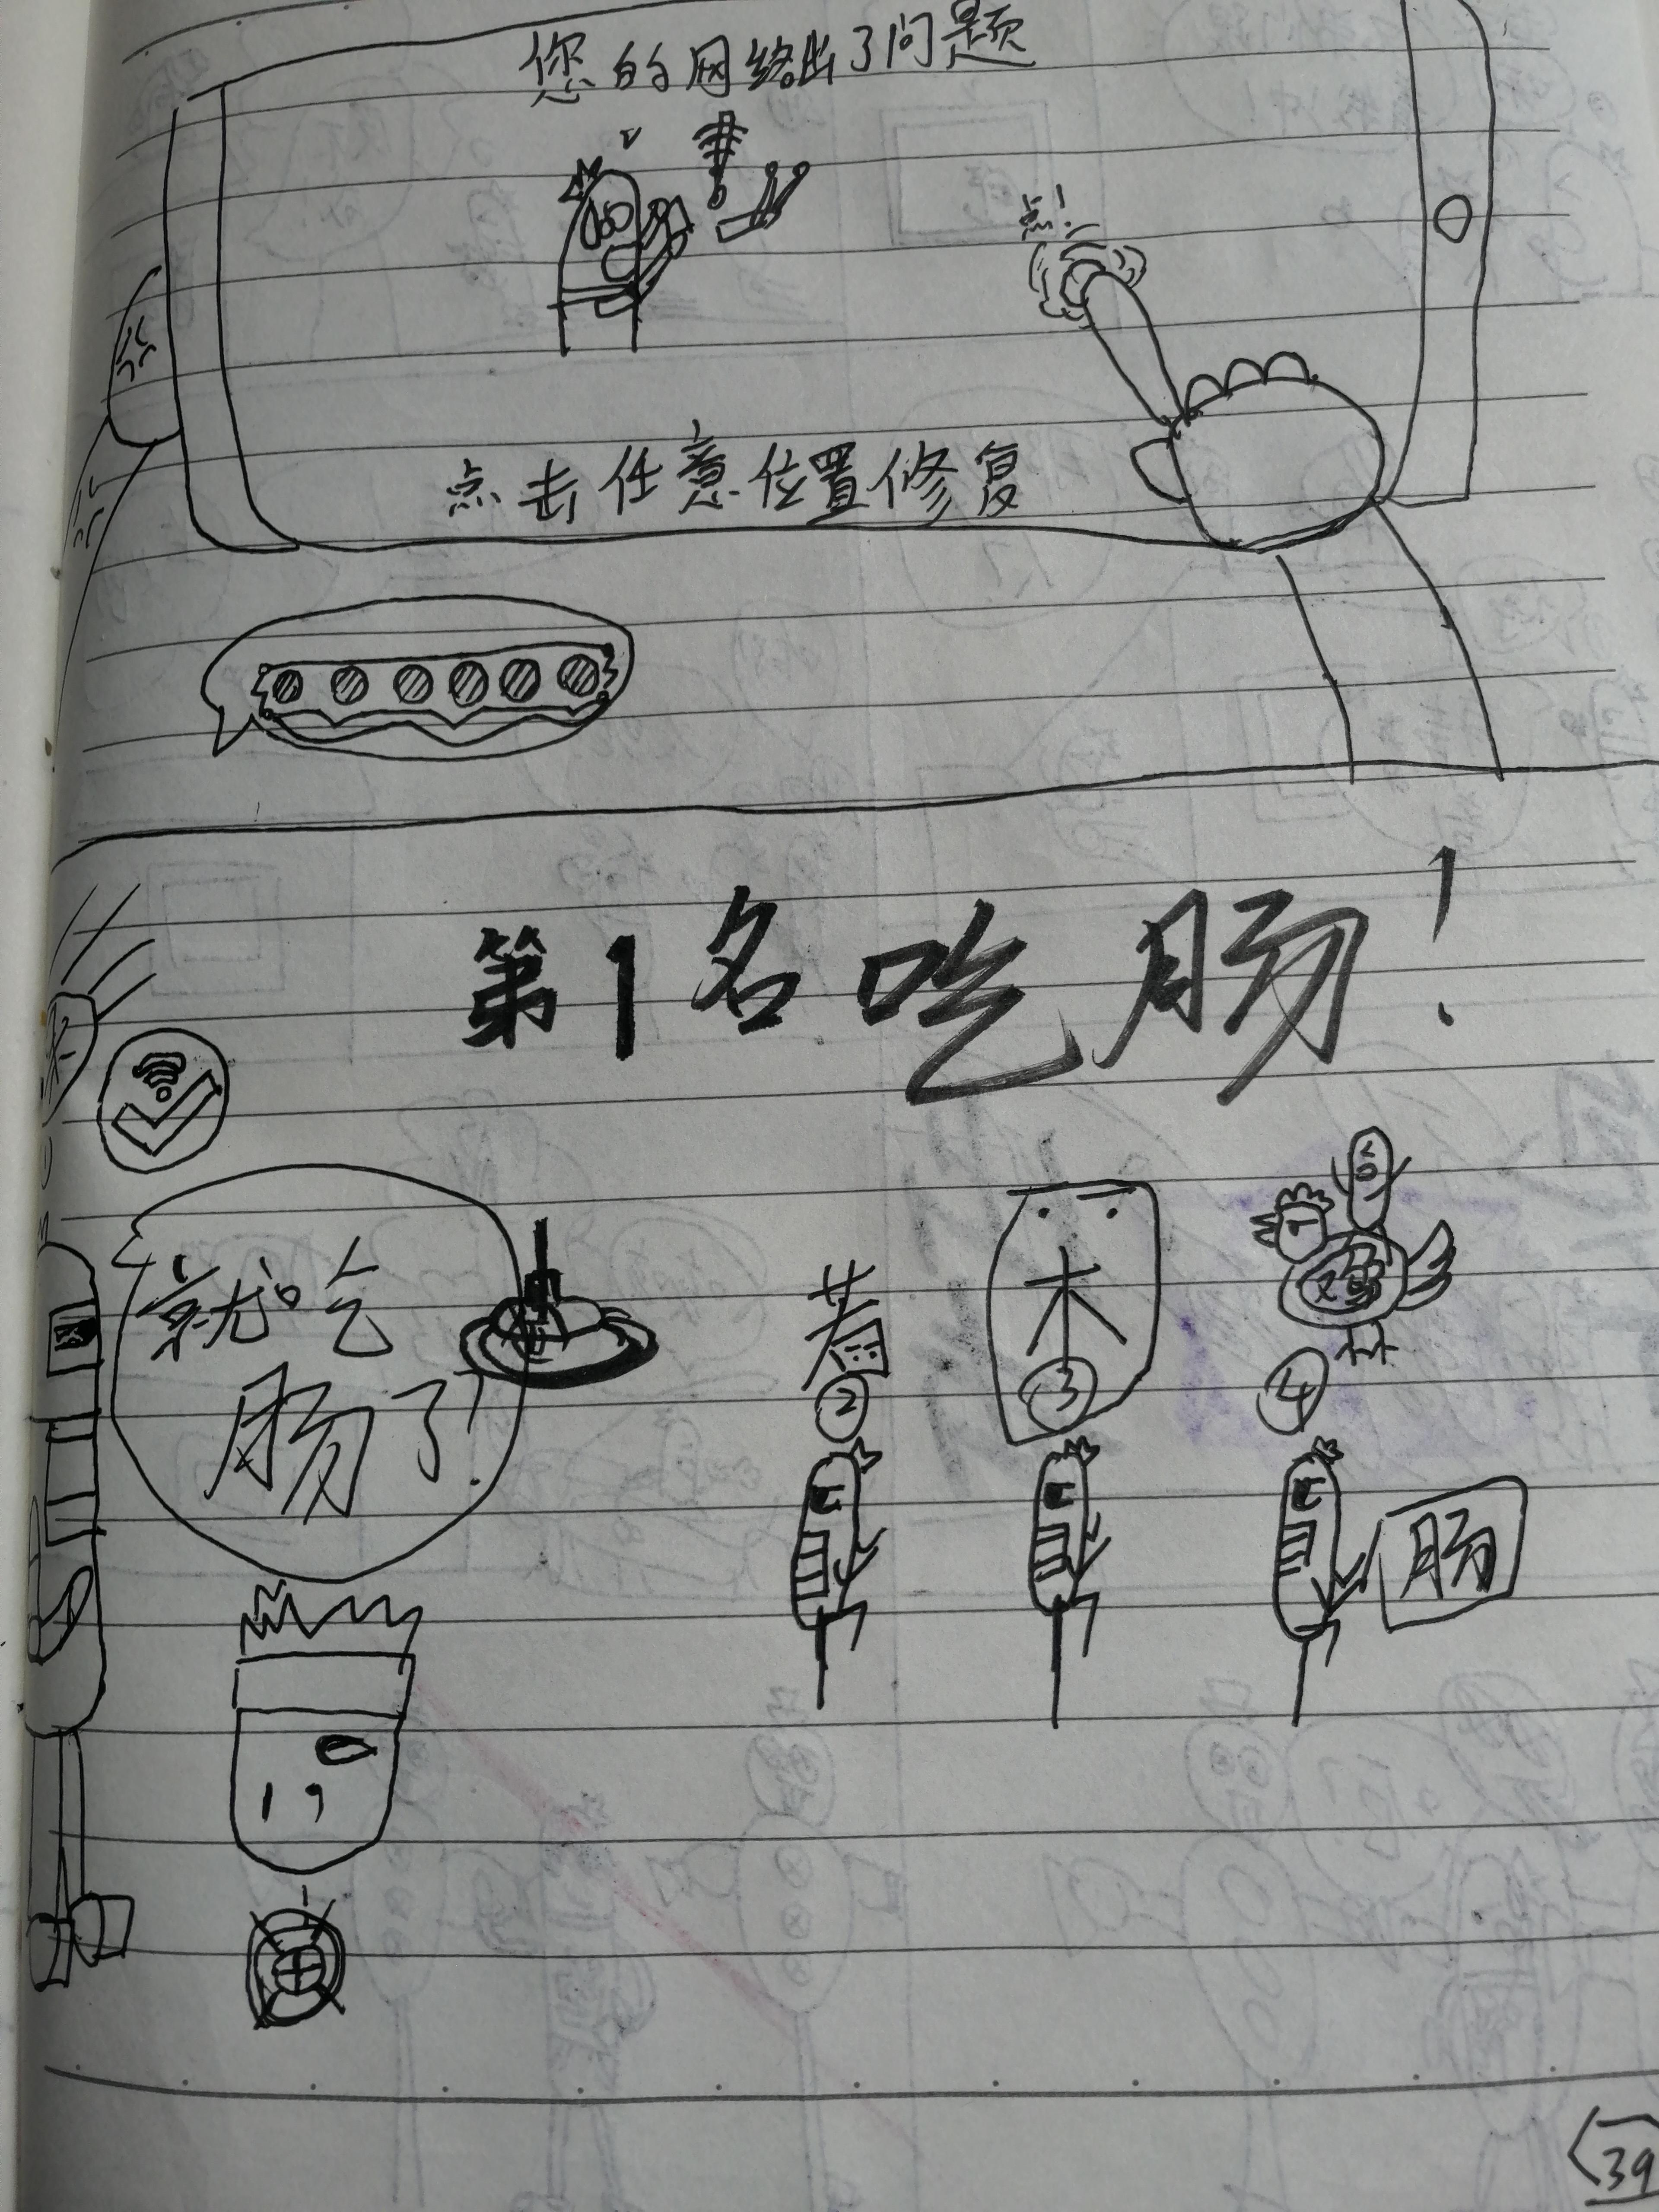 您的网络出了问题
点!
点击任意位置修复
第1名吃肠!
就吃
肠了!
木
鸡
②
③
④
肠
39